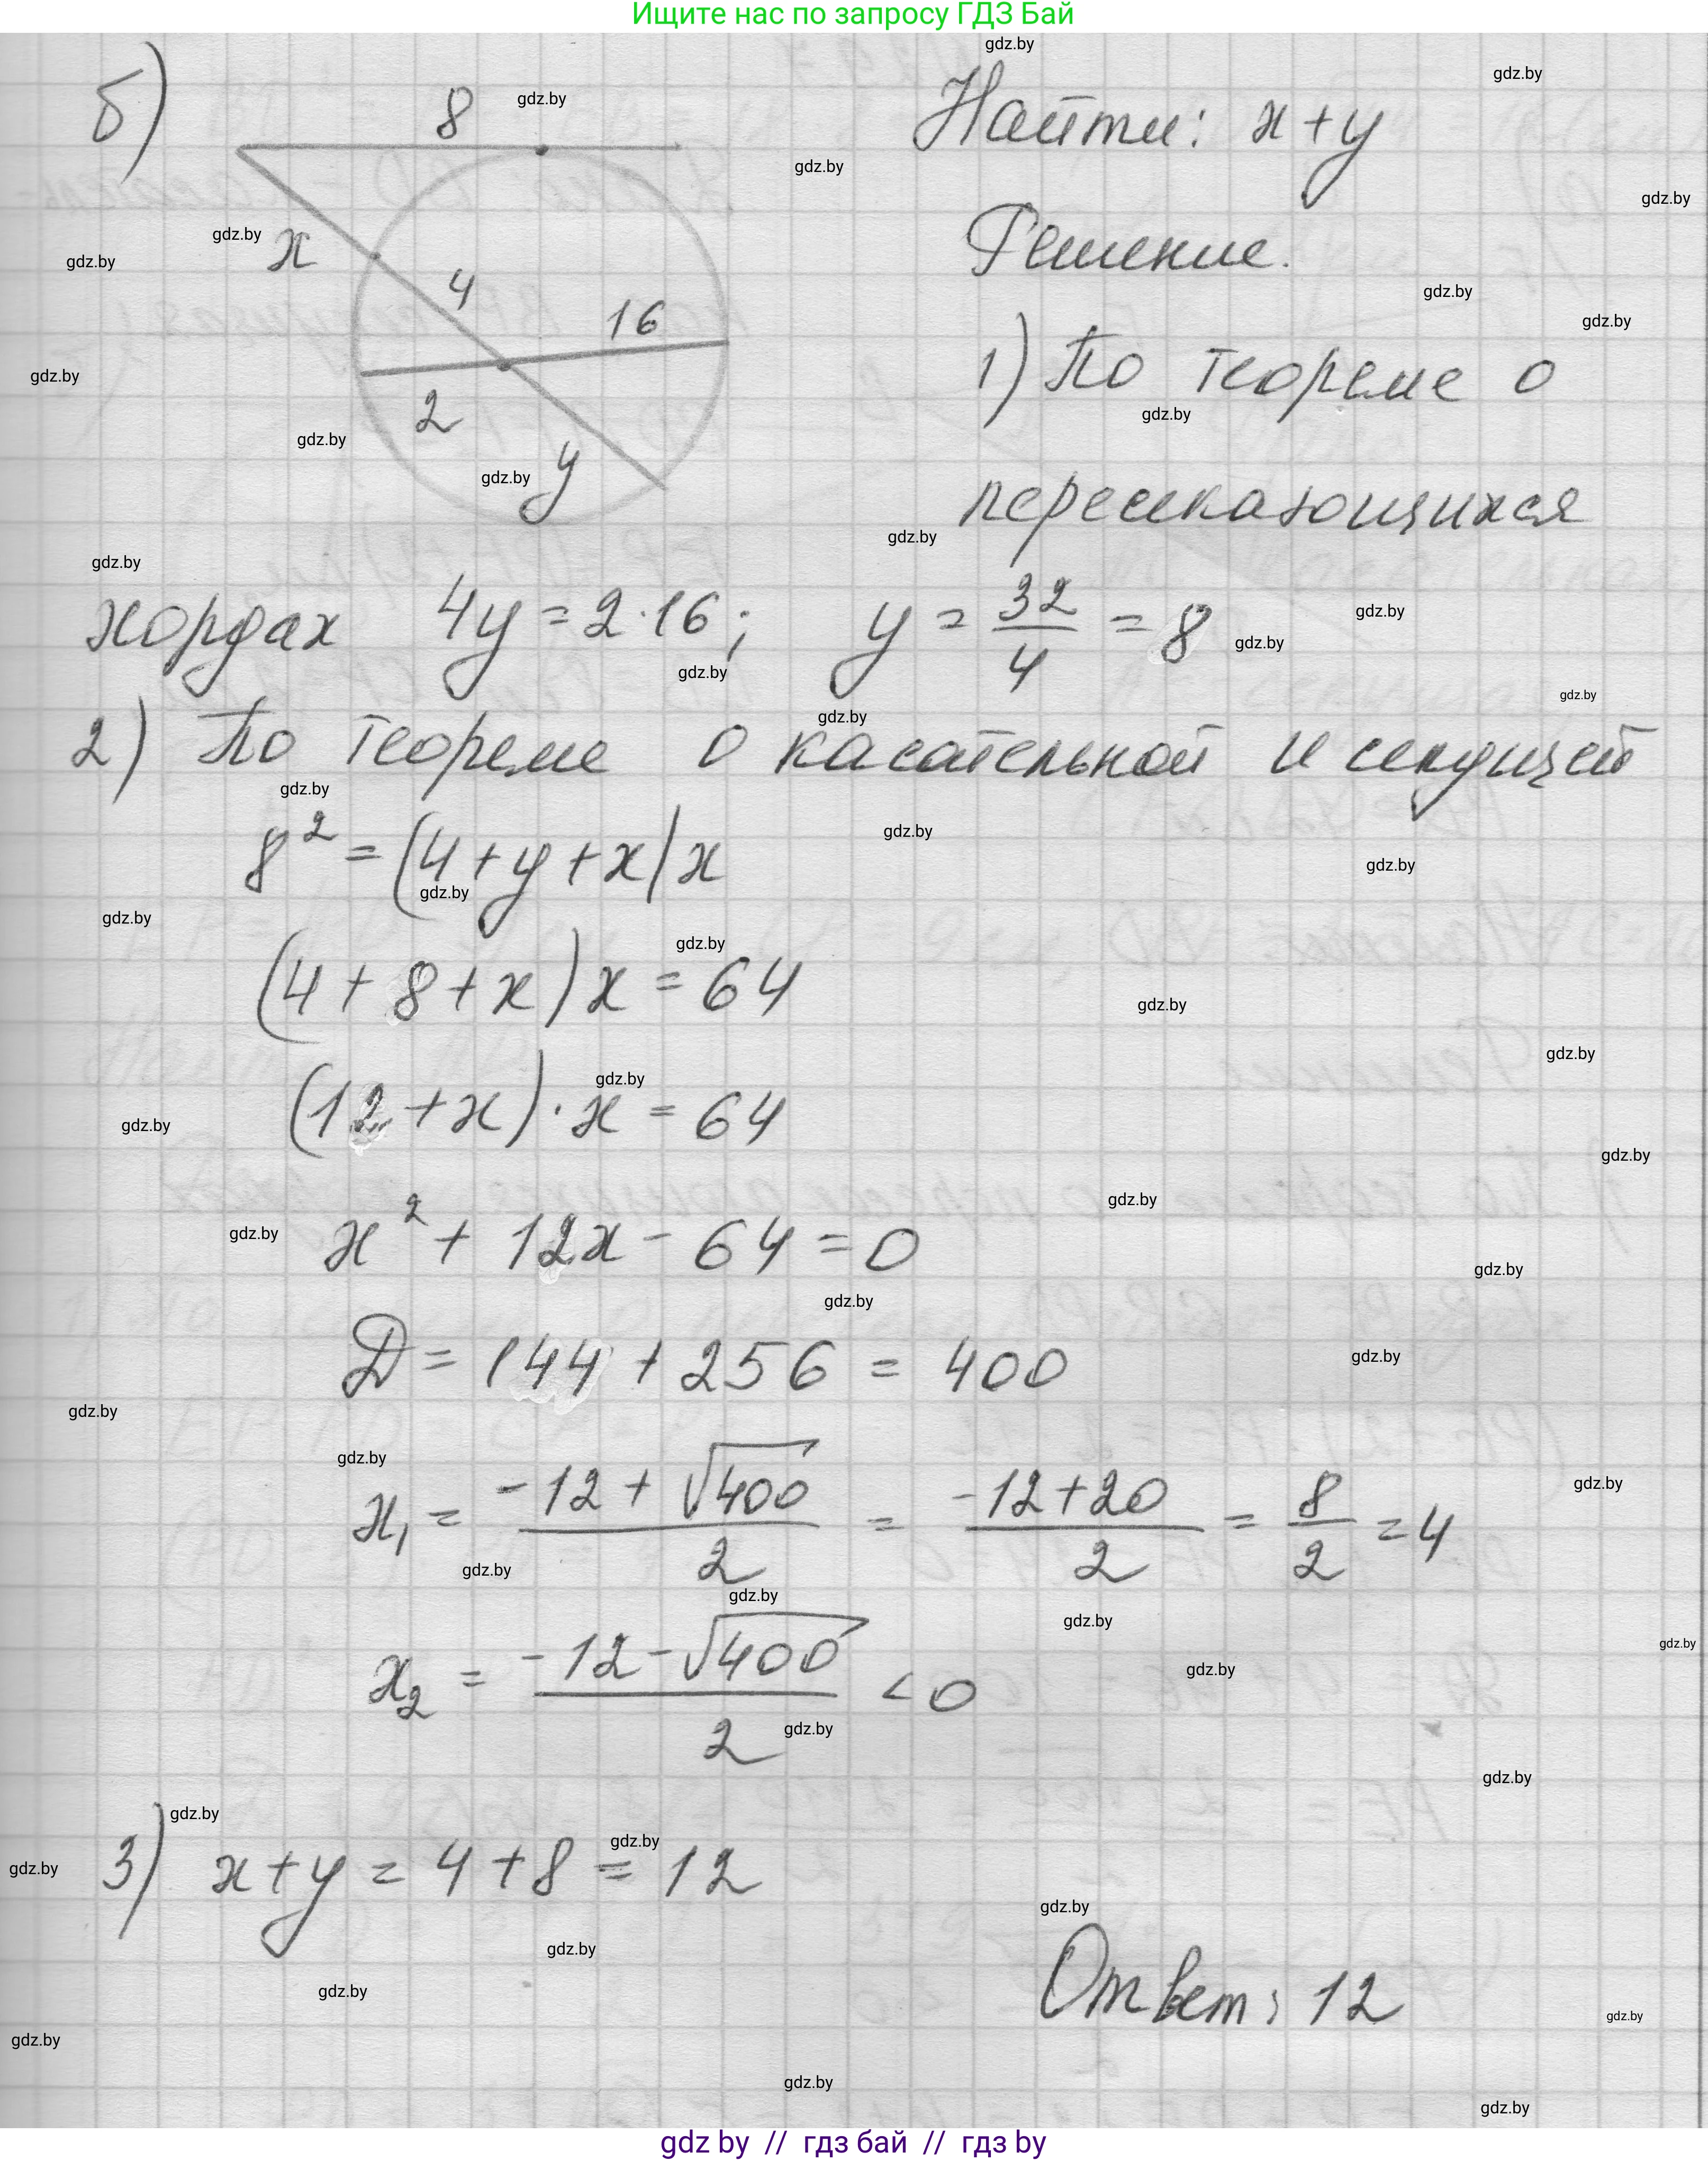 Ищите нас по запросу ГДЗ Бай
б)
8
x
4
16
2
y
Найти: x+y
Решение.
1) По теореме о
пересекающихся
хордах 4y = 2·16; y = 32/4 = 8
2) По теореме о касательной и секущей
8² = (4+y+x)x
(4+8+x)x = 64
(12+x)·x = 64
x² + 12x - 64 = 0
D = 144 + 256 = 400
x₁ = (-12+√400)/2 = (-12+20)/2 = 8/2 = 4
x₂ = (-12-√400)/2 < 0
3) x+y = 4+8 = 12
Ответ: 12
gdz.by
gdz by // гдз бай // гдз by